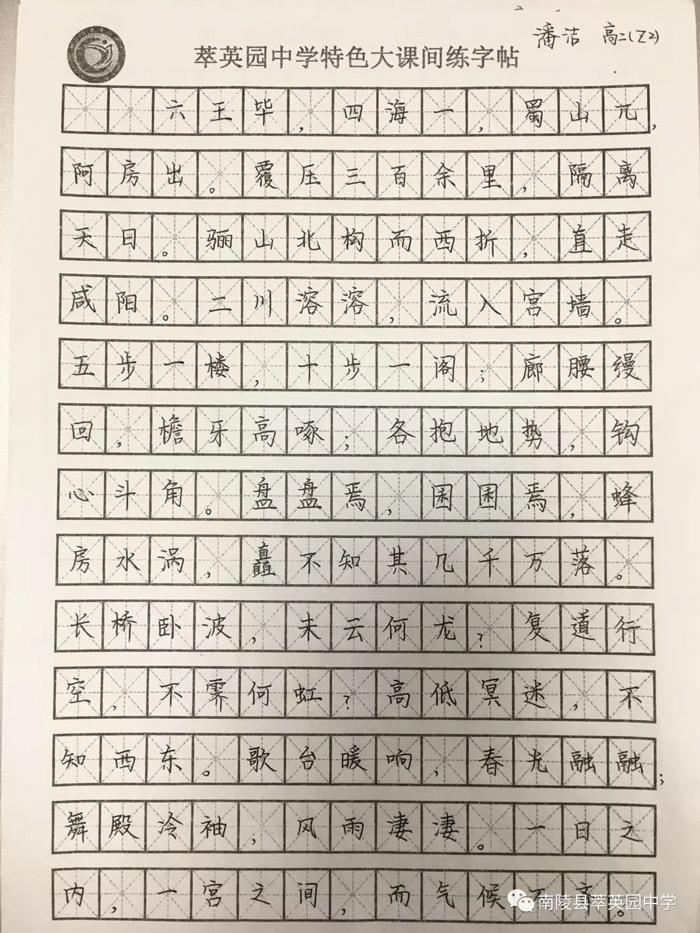 潘洁 高二(22)
萃英园中学特色大课间练字帖
六王毕，四海一，蜀山兀，
阿房出。覆压三百余里，隔离
天日。骊山北构而西折，直走
咸阳。二川溶溶，流入宫墙。
五步一楼，十步一阁；廊腰缦
回，檐牙高啄；各抱地势，钩
心斗角。盘盘焉，囷囷焉，蜂
房水涡，矗不知其几千万落。
长桥卧波，未云何龙？复道行
空，不霁何虹？高低冥迷，不
知西东。歌台暖响，春光融融；
舞殿冷袖，风雨凄凄。一日之
内，一宫之间，而气候不齐。
南陵县萃英园中学